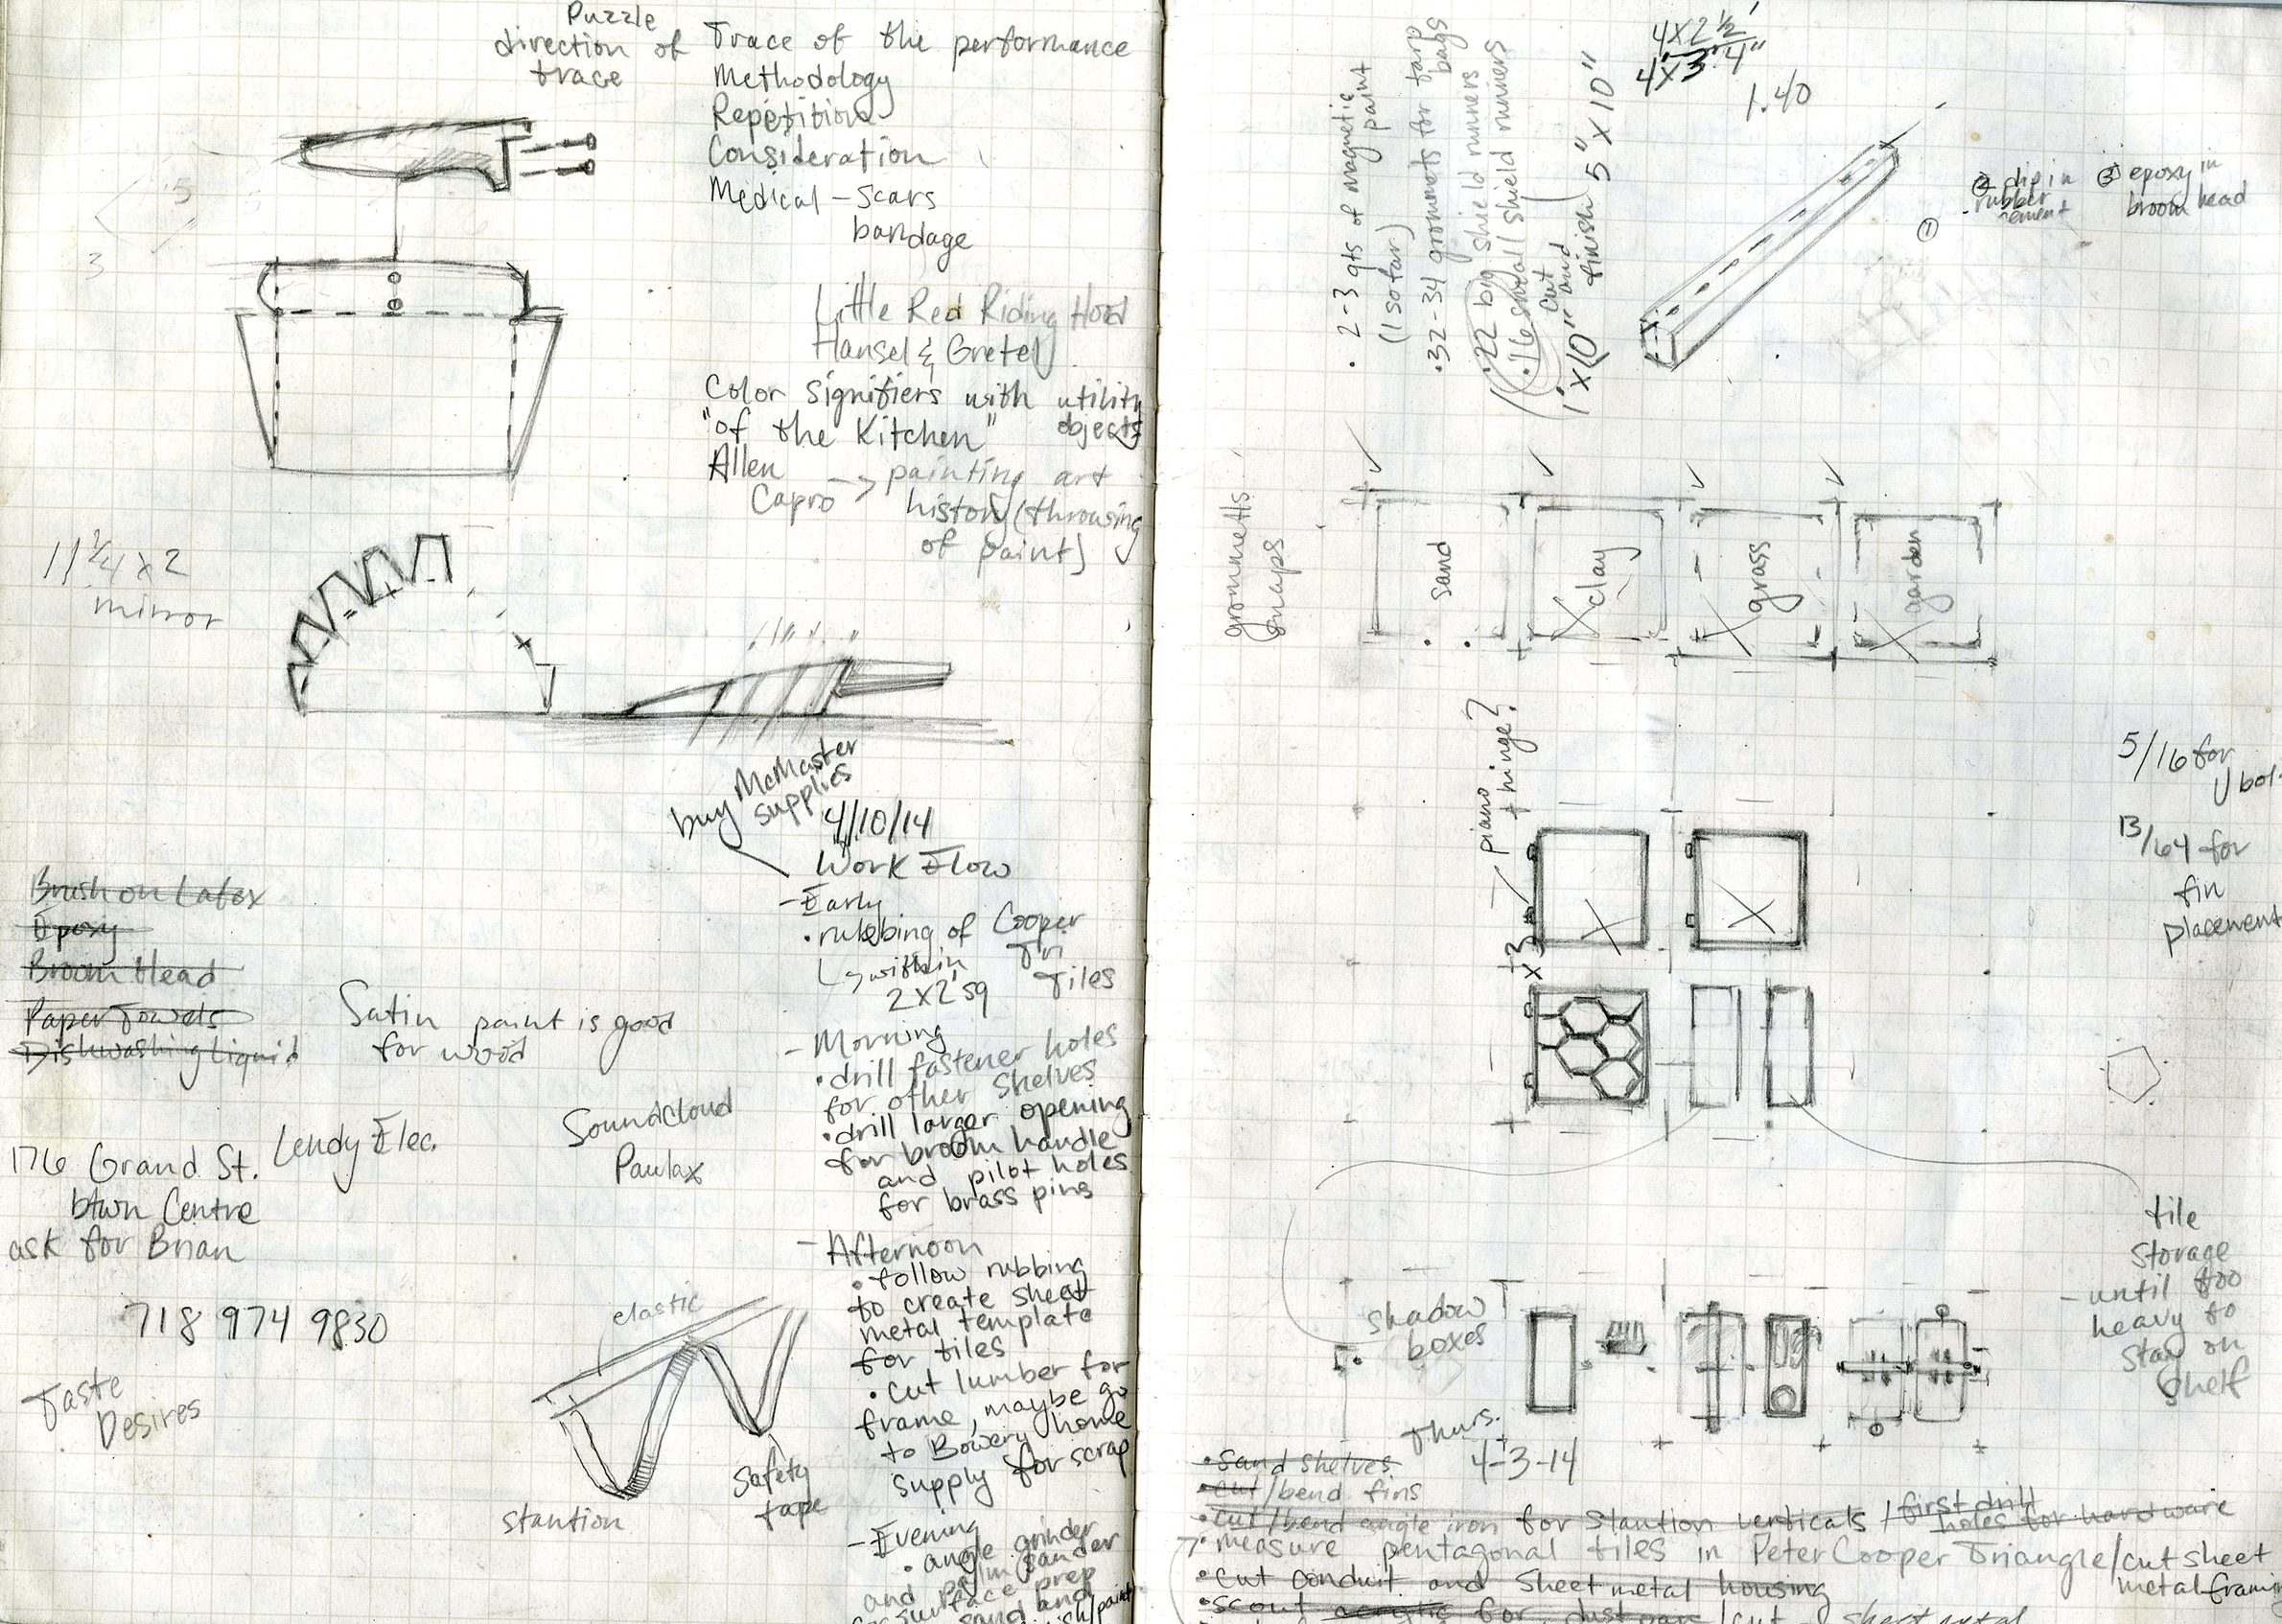 Puzzle
direction of
trace
Trace of the performance
Methodology
Repetition
Consideration
Medical - scars
bandage
Little Red Riding Hood
Hansel & Gretel
Color Signifiers with utility
objects
"of the Kitchen"
Allen
Capro -> painting art
history (throwing
of paint)
5
3
11 1/4 x 2
mirror
buy McMaster
supplies
4/10/14
Work Flow
- Early
• rubbing of Cooper
Tri
Tiles
↳ within
2x2' sq
- Morning
• drill fastener holes
for other shelves
• drill larger opening
for broom handle
and pilot holes
for brass pins
- Afternoon
• follow rubbing
to create sheet
metal template
for tiles
• cut lumber for
frame, maybe go
to Bowery home
supply for scrap
- Evening
• angle grinder
palm sander
and surface prep
sand and
Brush on Latex
Epoxy
Broom Head
Paper Towels
Dishwashing Liquid
Satin paint is good
for wood
Soundcloud
Paulax
176 Grand St. Lendy Elec.
btwn Centre
ask for Brian
718 974 9830
Taste
Desires
elastic
stantion
safety
tape
• 2-3 qts of magnetic
paint
(1 so far)
• 32-34 grommets for tarp
bags
• 22 big shield runners
• 16 small shield runners
cut
and
finish
1' x 10" 5" x 10"
4x2 1/2'
4x3' 4"
1.40
①
② dip in
rubber
cement
③ epoxy in
broom head
grommetts
snaps
sand
clay
grass
garden
piano
hinge?
x3
5/16 for
U bol
13/64 for
fin
placement
tile
storage
- until too
heavy to
stay on
shelf
shadow
boxes
Thurs.
4-3-14
• Sand shelves
• cut/bend fins
• cut/bend angle iron for Stantion verticals / first drill
holes for hardware
• measure pentagonal tiles in Peter Cooper Triangle/cut sheet
metal framin
• cut conduit and sheet metal housing
• scout acrylic for dust pan / cut sheet metal